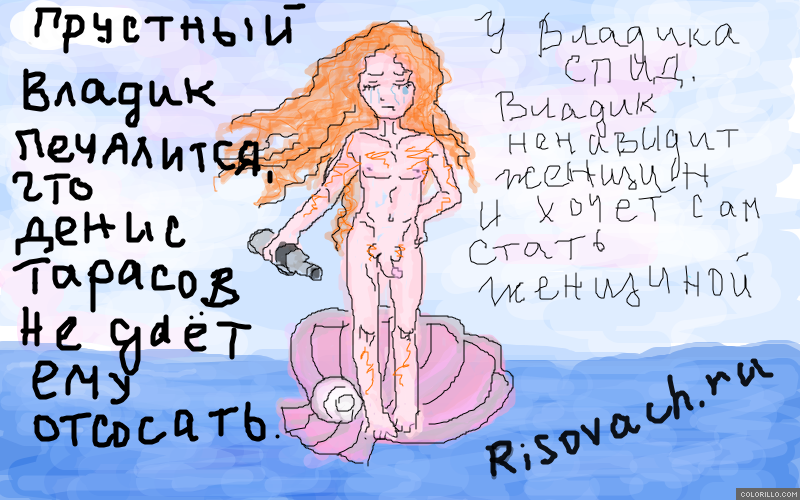 Грустный
Владик
печалится,
что
Денис
Тарасов
не даёт
ему
отсосать.
У Владика
СПИД.
Владик
ненавидит
женщин
и хочет сам
стать
женщиной
Risovach.ru
COLORILLO.COM